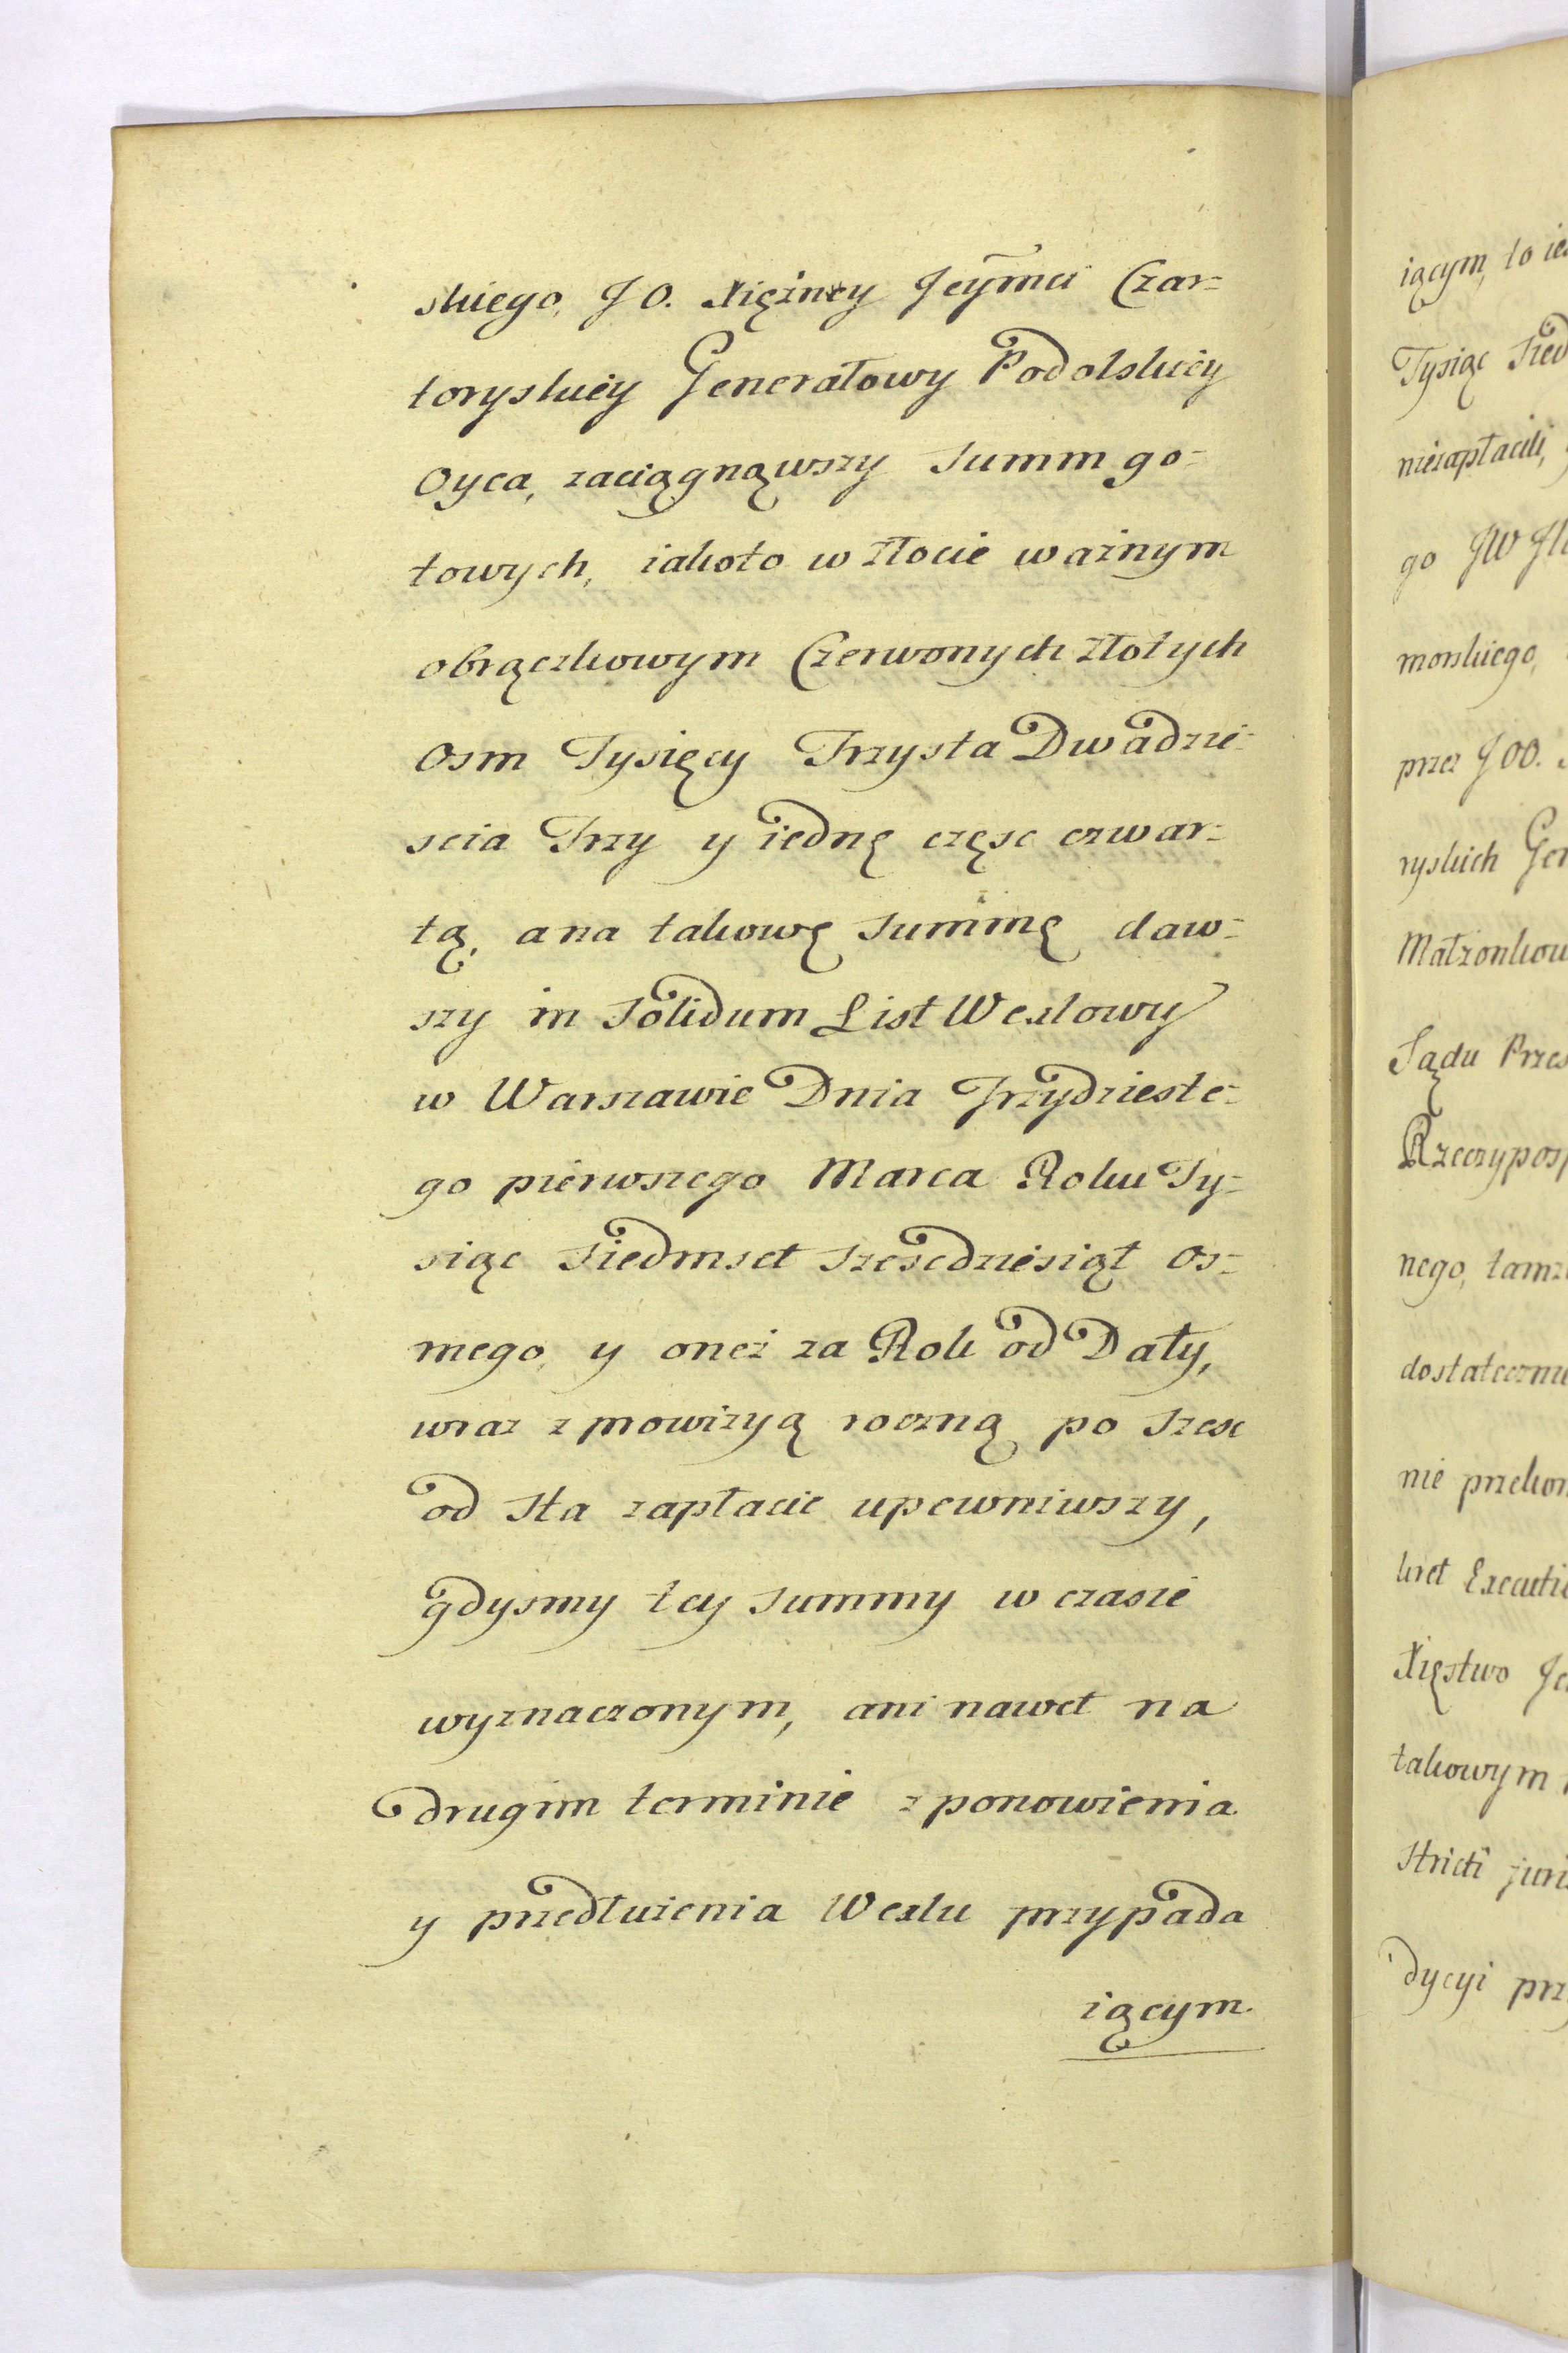 skiego, JO. Xiężney Jeymci Czar=
toryskiey Generałowy Podolskiey
Oyca, zaciągnąwszy Summ go=
towych, iakoto w Złocie ważnym
obrączkowym Czerwonych Złotych
Osm Tysięcy Trzysta Dwadzie=
scia Trzy y iednę częsc czwar=
tą, a na takowę Summę daw=
szy in Solidum List Wexlowy
w Warszawie Dnia Trzydzieste=
go pierwszego Marca Roku Ty=
siąc Siedmset szescdziesiąt os=
mego, y oneż za Rok od Daty,
wraz z prowizyą roczną po szesc
od Sta zapłacic upewniwszy,
gdysmy tey Summy w czasie
wyznaczonym, ani nawet na
drugim terminie z ponowienia
y przedłużenia Wexlu przypada
iącym
iącym, to ie
Tysiąc Sied
niezapłacili,
go JW
morskiego,
przez JOO.
ryskich Gen
Małzonkow
Sądu Przes
Rzeczyposp
nego, tamz
dostatecznie
nie przekon
kret Executi
Xięstwo Je
takowym
Stricti juri
dycyi prz